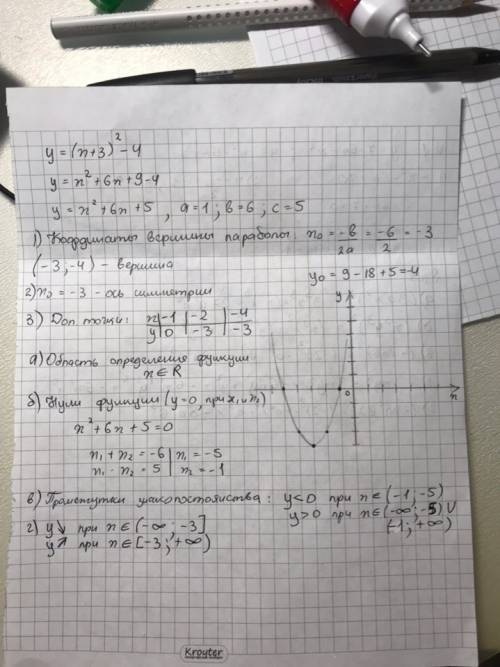 y = (x+3)² - 4
y = x² + 6x + 9 - 4
y = x² + 6x + 5 , a = 1 ; b = 6 ; c = 5
1) Координаты вершины параболы: x₀ = -b/2a = -6/2 = -3
(-3 ; -4) - вершина
y₀ = 9 - 18 + 5 = -4
2) x₀ = -3 - ось симметрии
3) Доп точки: x | -1 | -2 | -4
y | 0 | -3 | -3
y
0
x
а) Область определения функции
x ∈ R
б) Нули функции (y=0, при x₁ и x₂)
x² + 6x + 5 = 0
x₁ + x₂ = -6 | x₁ = -5
x₁ · x₂ = 5 | x₂ = -1
в) Промежутки знакопостоянства: y < 0 при x ∈ (-1 ; -5)
y > 0 при x ∈ (-∞ ; -5) ∪
(-1 ; +∞)
г) y ↘ при x ∈ (-∞ ; -3]
y ↗ при x ∈ [-3 ; +∞)
Kroyter